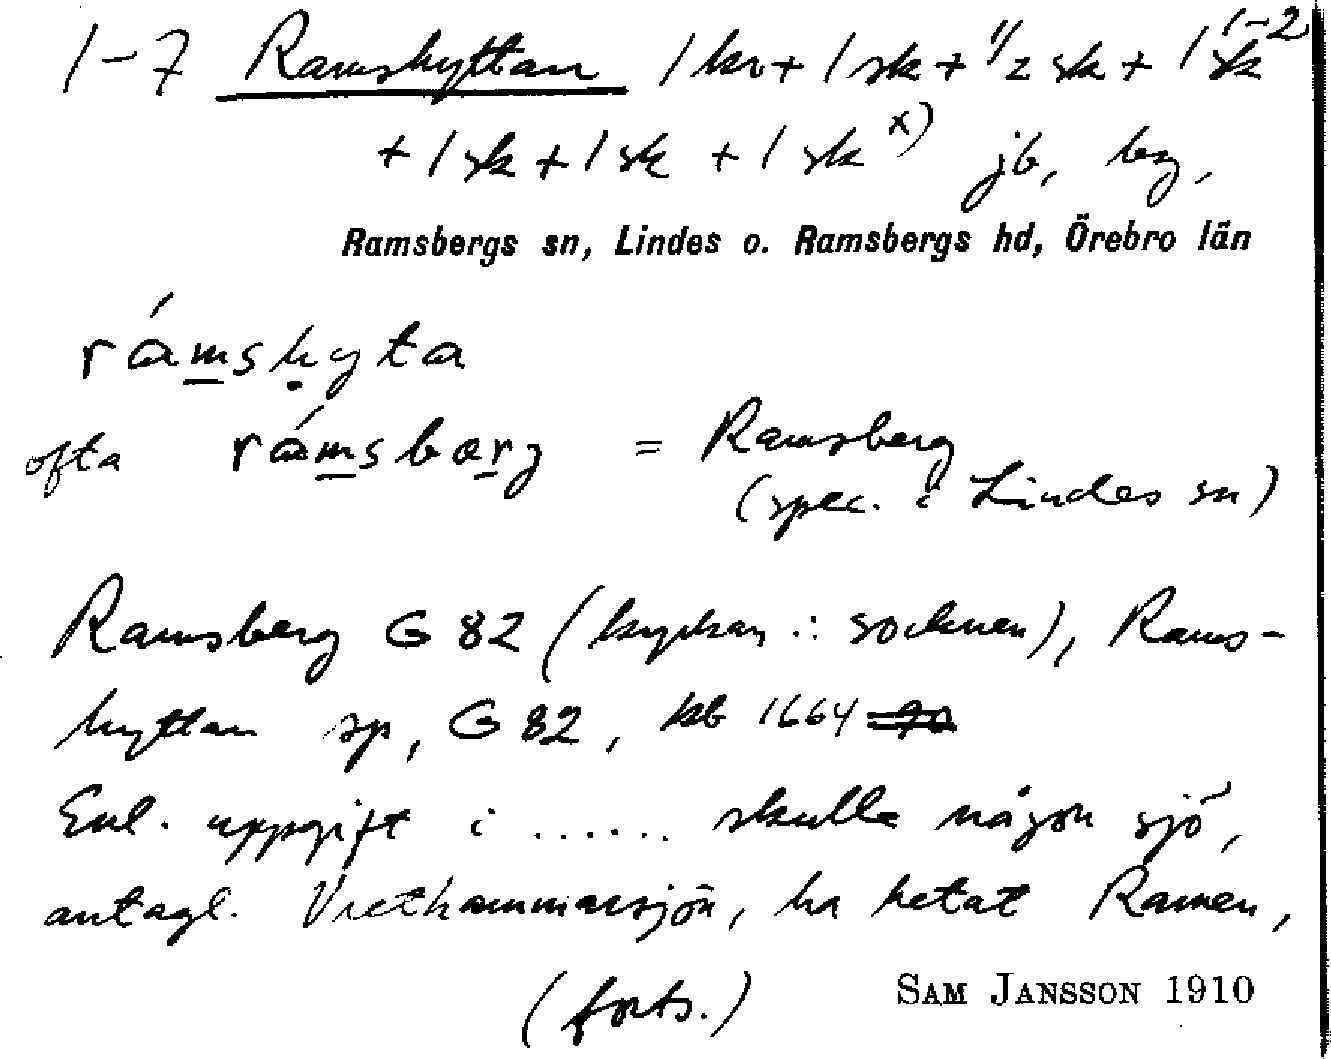 1–7 Ramshyttan 1 kr + 1 sk + 1/2 sk + 1 sk 1–2
+ 1 sk + 1 sk + 1 sk x) jb,
Ramsbergs sn, Lindes o. Ramsbergs hd, Örebro län
rámshyta
ofta rámsbærj = Ramsberg
(spec. i Lindes sn)
Ramsberg G 82 (kyrkan i socknen), Rams-
hyttan sp, G 82, kb 1664
Enl. uppgift i ...... skulle någon sjö,
antagl. Vrethammarsjön, ha hetat Ramen,
(forts.)
SAM JANSSON 1910